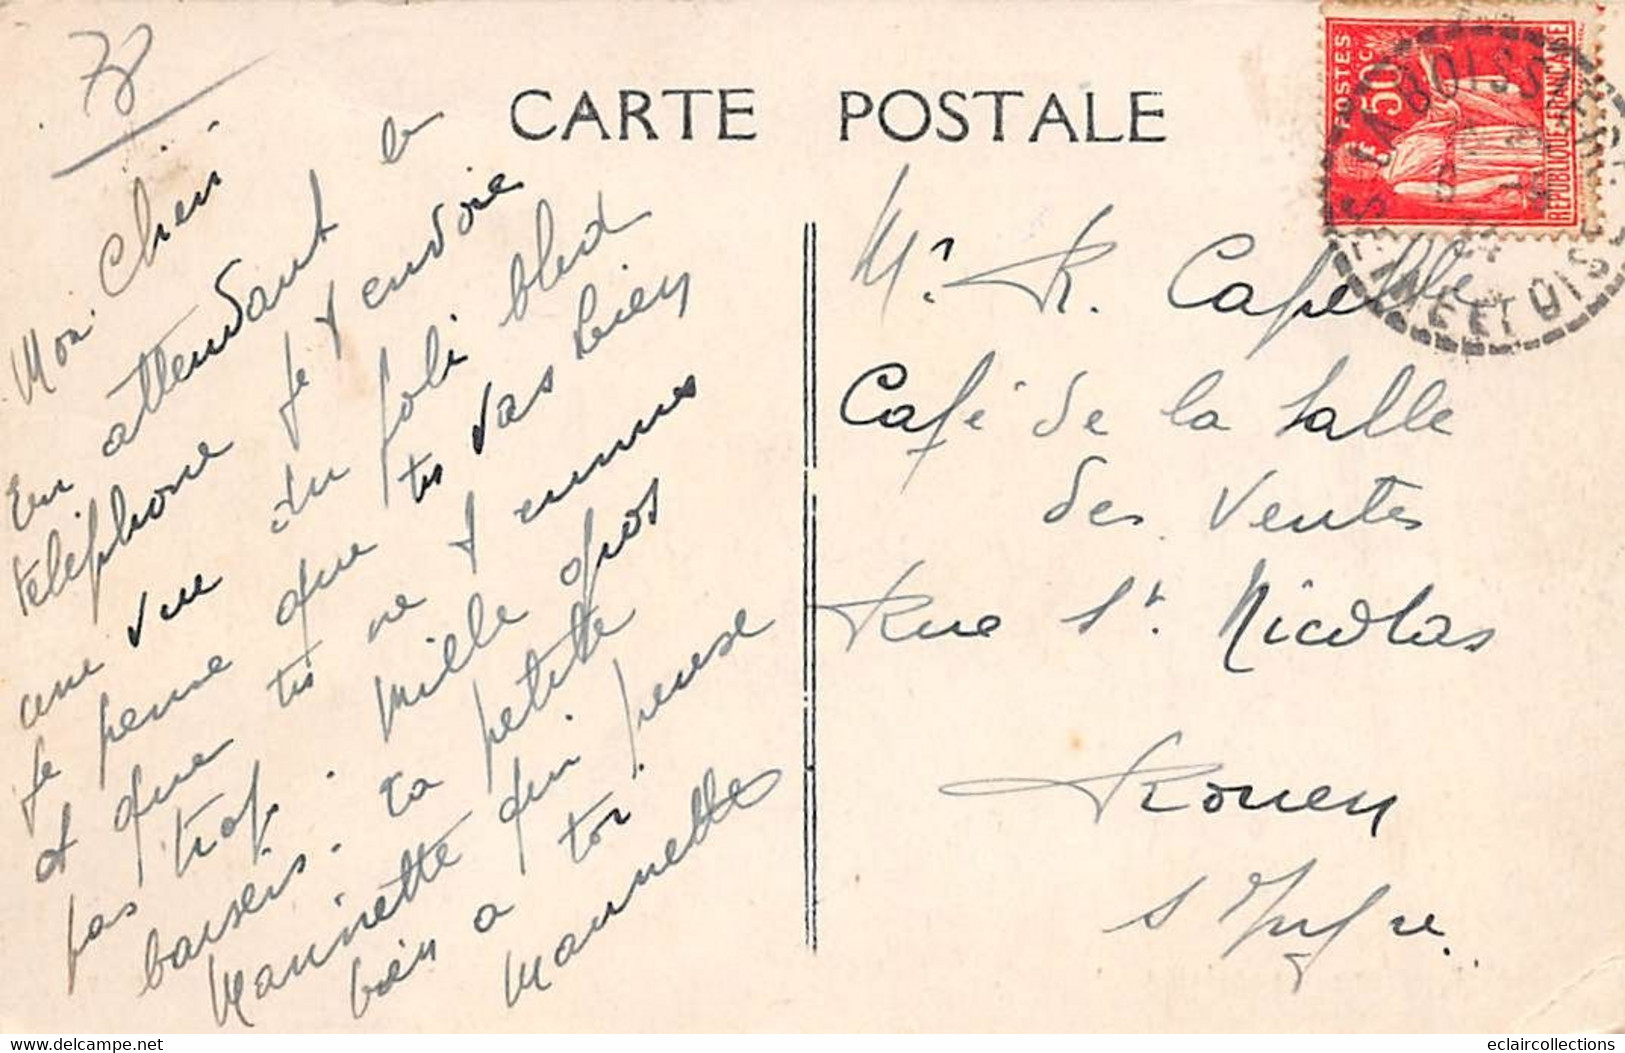 78
CARTE POSTALE
Mon Chéri
En attendant le
téléphone je t envoie
une vue du joli bled
Je pense que tu vas bien
et que tu ne t ennuies
pas trop. Mille gros
baisers. Ta petite
Maninette qui pense
bien a toi
Maninette
Mr. R. Capelle
Café de la Salle
des Ventes
Rue St. Nicolas
Rouen
S Infre.
POSTES
50c
REPUBLIQUE FRANCAISE
LA BOISSIERE
SEINE ET OISE
delcampe.net
eclaircollections